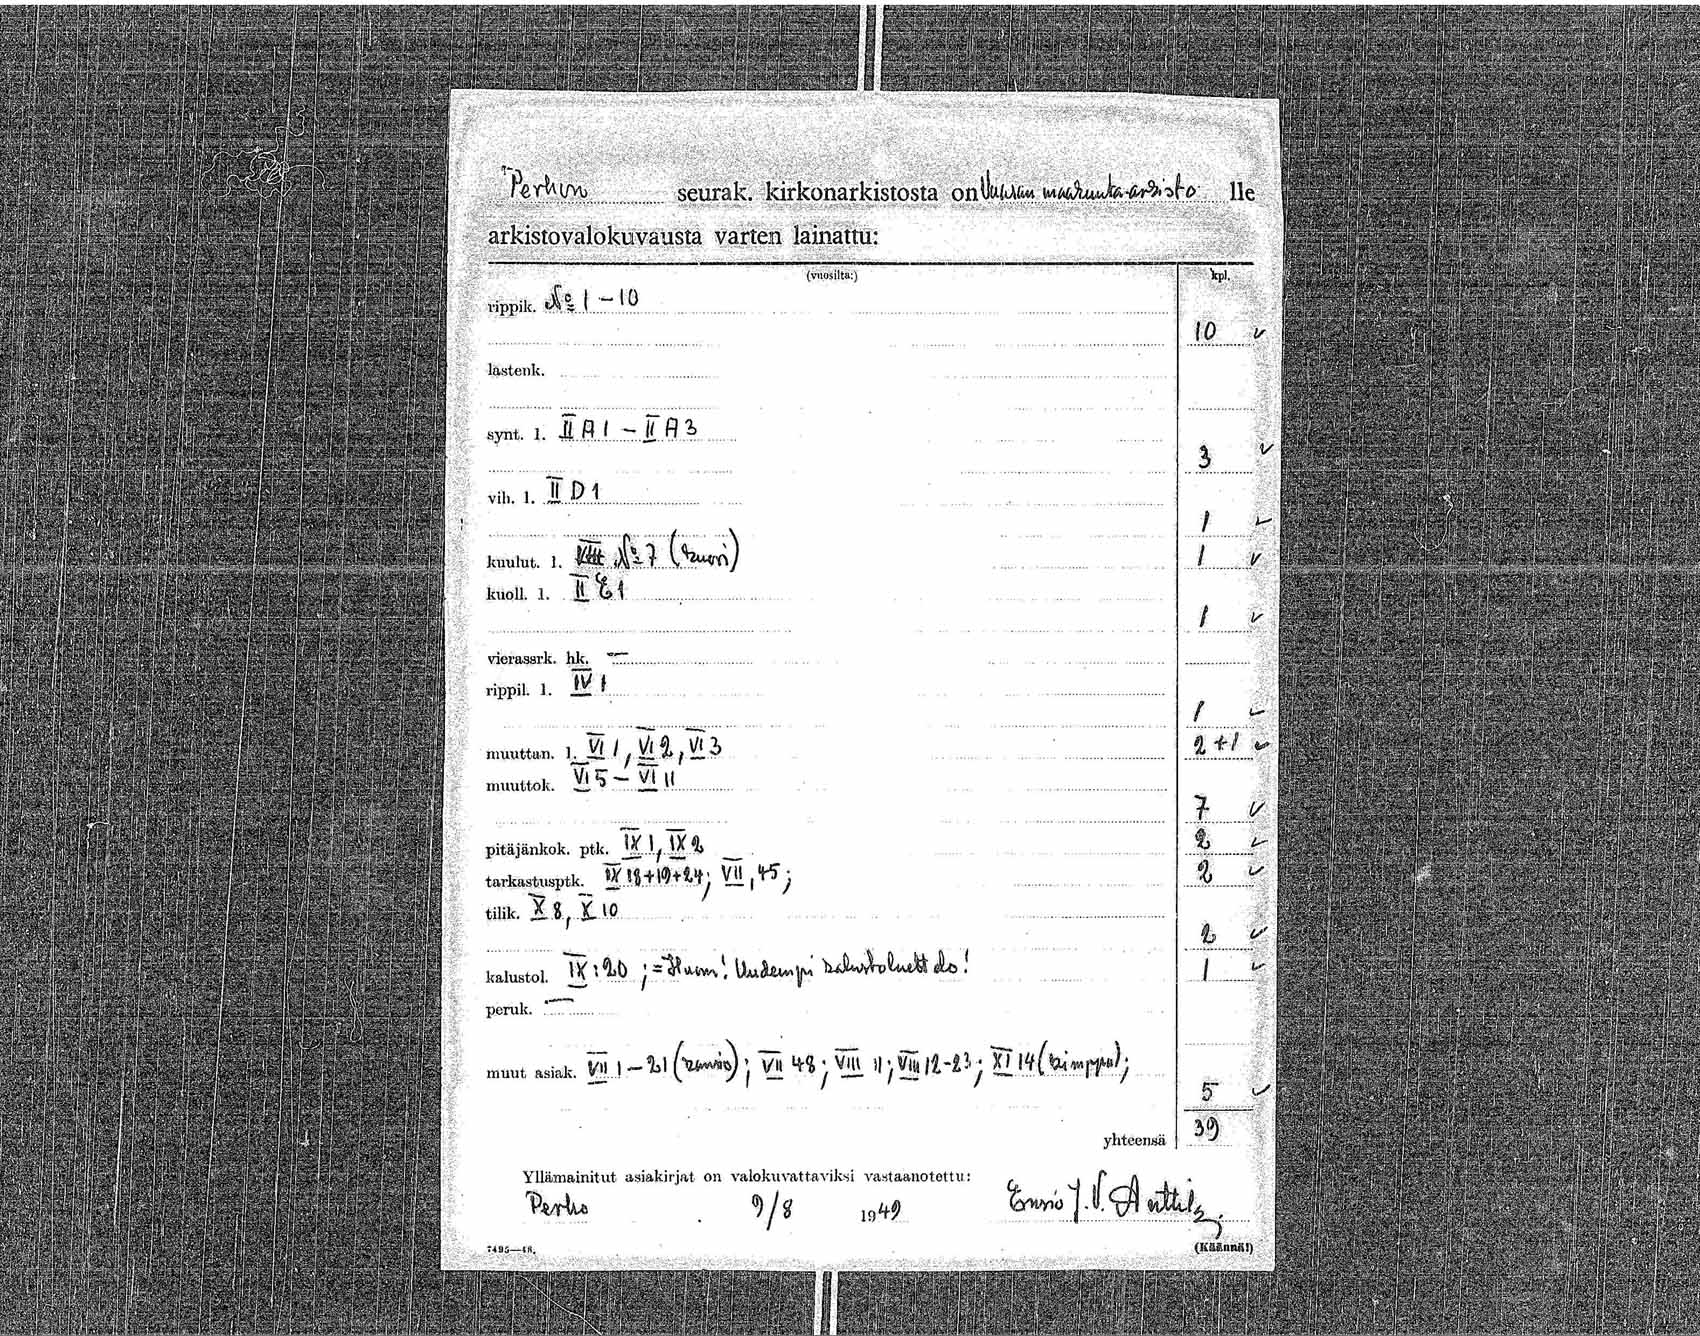 Perhon seurak. kirkonarkistosta on Vaasan maakunta-arkisto lle
arkistovalokuvausta varten lainattu:
(vuosilta:) kpl.
rippik. No 1 – 10
10 ✓
lastenk.
synt. l. II A 1 – II A 3
3 ✓
vih. l. II D 1
1 ✓
kuulut. l. No 7 (kuori) 1 ✓
kuoll. l. II E 1
1 ✓
vierassrk. hk. —
rippil. l. IV 1
1 ✓
muuttan. l. VI 1, VI 2, VI 3 2 + 1 ✓
muuttok. VI 5 – VI 11
7 ✓
pitäjänkok. ptk. IX 1, IX 2 2 ✓
tarkastusptk. IX 18+19+24; VII, 45; 2 ✓
tilik. X 8, X 10
2 ✓
kalustol. IX: 20 ; = Huom! Uudempi kalustoluett.lo! 1 ✓
peruk. —
muut asiak. VII 1 – 21 (kansio); VII 48; VIII 11; VIII 12-23; XI 14 (kimppu);
5 ✓
yhteensä 39
Yllämainitut asiakirjat on valokuvattaviksi vastaanotettu:
Perho 9/8 1949 Ensio J. V. Anttila.
7495—48. (Käännä!)